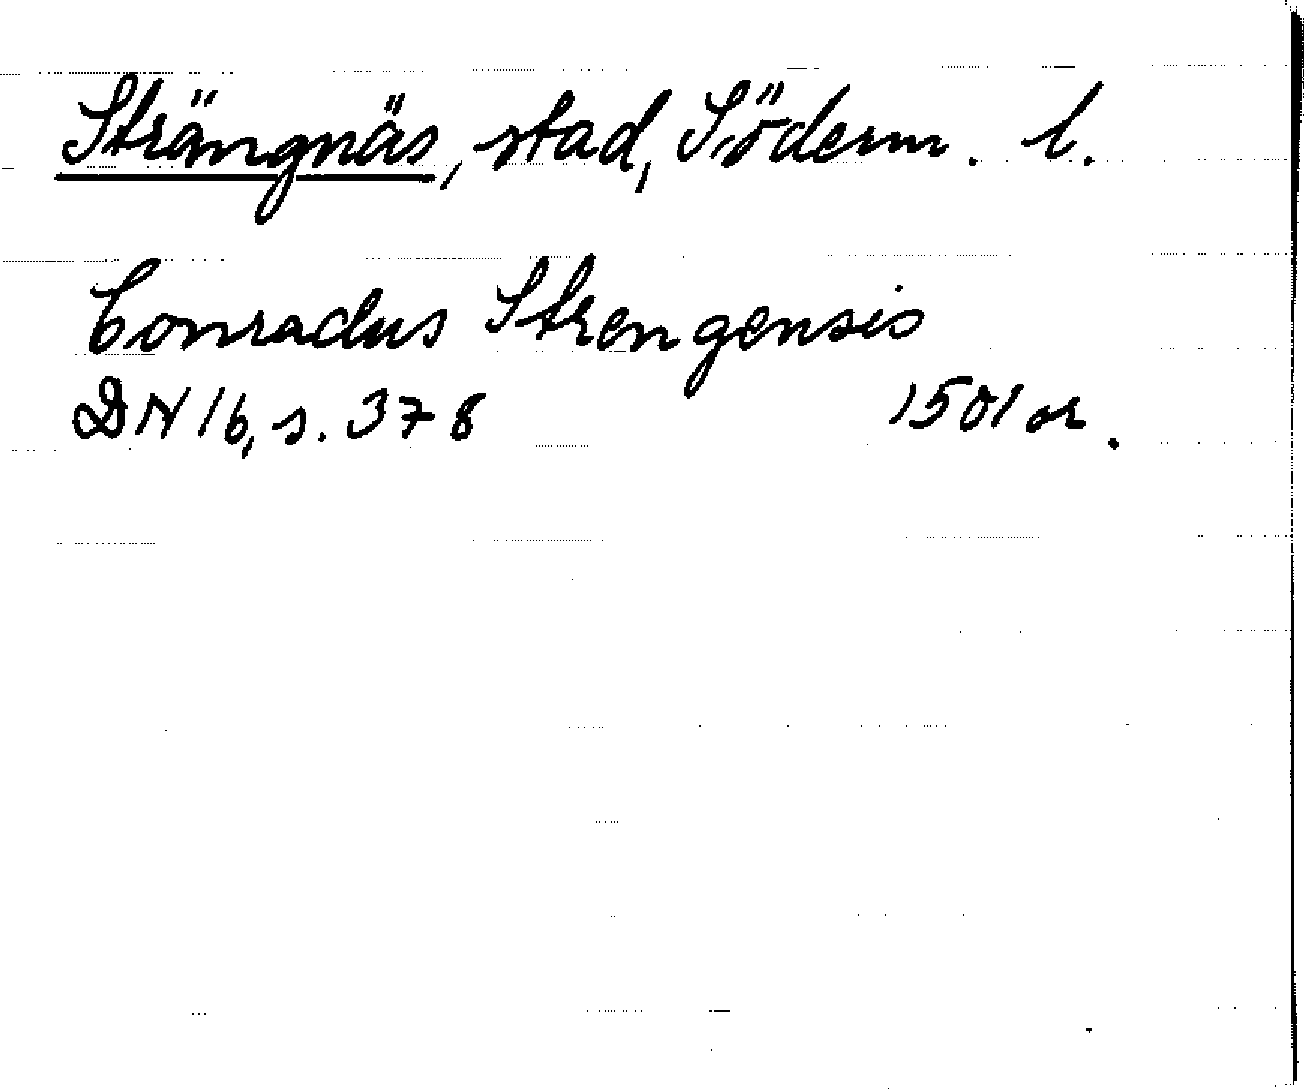 Strängnäs, stad, Söderm. l.
Conradus Strengensis
DN 16, s. 378 1501 or.